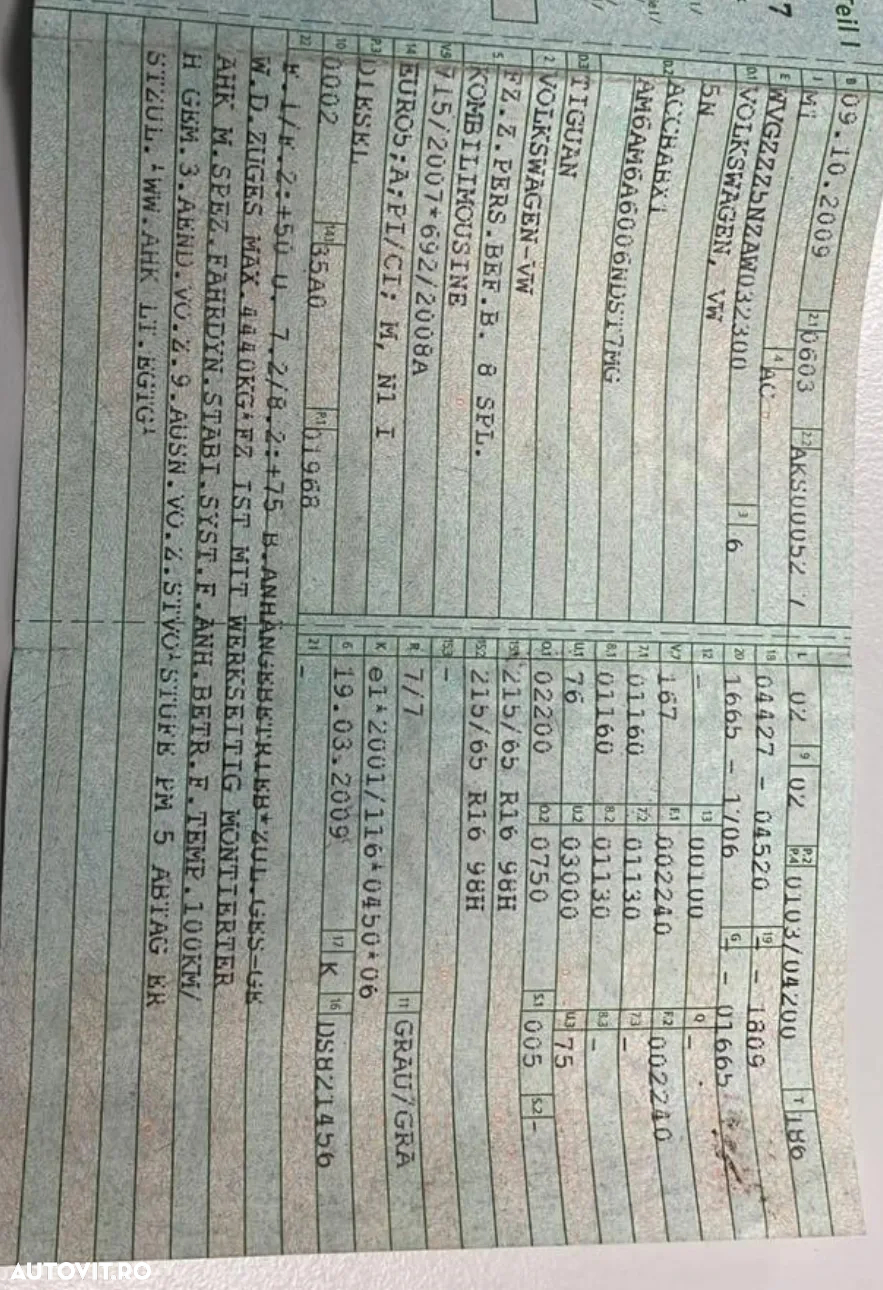 Teil I
7
B 09.10.2009 2.1 0603 2.2 AKS00052 7
J M1 4 AC
E WVGZZZ5NZAW032300 3 6
D.1 VOLKSWAGEN, VW
5N
D.2 ACCBABX1
AM6AM6A6006NDST7MG
D.3 TIGUAN
2 VOLKSWAGEN-VW
5 FZ.Z.PERS.BEF.B. 8 SPL.
KOMBILIMOUSINE
V.9 715/2007*692/2008A
14 EURO5;A;PI/CI; M, N1 I
P.3 DIESEL
10 0002 14.1 35A0 P.1 01968
L 02 9 02 P.2 P.4 0103/04200 T 186
18 04427 - 04520 19 - 1809
20 1665 - 1706 G - 01665
12 - 13 00100 Q -
V.7 167 F.1 002240 F.2 002240
7.1 01160 7.2 01130 7.3 -
8.1 01160 8.2 01130 8.3 -
U.1 76 U.2 03000 U.3 75
O.1 02200 O.2 0750 S.1 005 S.2 -
15.1 215/65 R16 98H
15.2 215/65 R16 98H
15.3 -
R 7/7 11 GRAU/GRA
K e1*2001/116*0450*06
6 19.03.2009 17 K 16 DS821456
21 -
22 F.1/F.2:+50 U. 7.2/8.2:+75 B.ANHÄNGEBETRIEB*ZUL.GES-GE
W.D.ZUGES MAX.4440KG*FZ IST MIT WERKSEITIG MONTIERTER
AHK M.SPEZ.FAHRDYN.STABI.SYST.F.ANH.BETR.F.TEMP.100KM/
H GEM.3.AEND.VO.Z.9.AUSN.VO.Z.STVO*STUFE PM 5 ABTAG ER
STZUL.*WW.AHK LT.EGTG*
AUTOVIT.RO